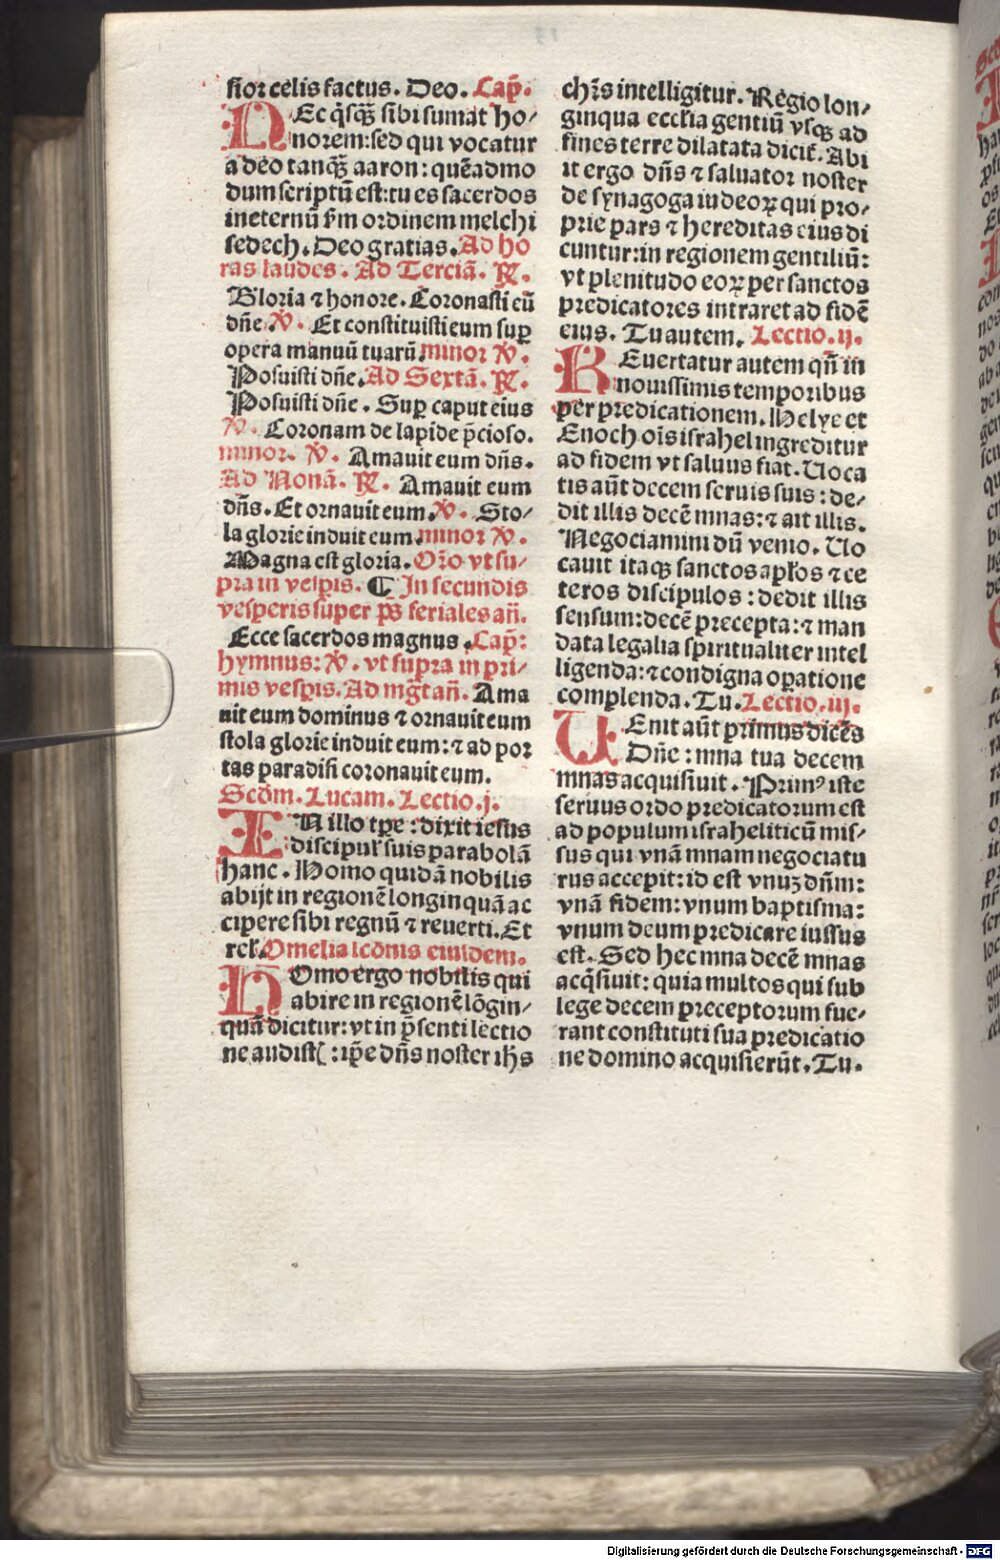 fior celis factus. Deo. Cap̄.
NEc q̇sq̄ꝫ sibi sumat ho⸗
norem: sed qui vocatur
a deo tanq̄ꝫ aaron: quēadmo
dum scriptū est: tu es sacerdos
ineternū s̄m ordinem melchi
sedech. Deo gratias. Ad ho
ras laudes. Ad Terciā. R̄.
Gloria ⁊ honore. Coronasti eū
dn̄e. V̄. Et constituisti eum suꝑ
opera manuū tuarū. minor V̄.
Posuisti dn̄e. Ad Sextā. R̄.
Posuisti dn̄e. Suꝑ caput eius
V̄. Coronam de lapide p̄cioso.
minor. V̄. Amauit eum dn̄s.
Ad Nonā. R̄. Amauit eum
dn̄s. Et ornauit eum. V̄. Sto⸗
la glorie induit eum. minor V̄.
Magna est gloria. Or̄o vt su⸗
pra in vesꝑis. ¶ In secundis
vesperis super ps̄ feriales an̄.
Ecce sacerdos magnus. Cap̄:
hymnus: V̄. vt supra in pri⸗
mis vesꝑis. Ad mḡt an̄. Ama
uit eum dominus ⁊ ornauit eum
stola glorie induit eum: ⁊ ad por
tas paradisi coronauit eum.
Scd̄m. Lucam. Lectio. j.
IN illo tꝑe: dixit iesus
discipul' suis parabolā
hanc. Homo quidā nobilis
abijt in regionē longinquā ac
cipere sibi regnū ⁊ reuerti. Et
rel'. Omelia lcōnis eiusdem.
HOmo ergo nobilis qui
abire in regionē lōgin⸗
quā dicitur: vt in p̄senti lectio
ne audistꝭ: ip̄e dn̄s noster ih̄s
chr̄s intelligitur. Regio lon⸗
ginqua eccl̄ia gentiū vsqꝫ ad
fines terre dilatata dicit̄. Abi
it ergo dn̄s ⁊ saluator noster
de synagoga iudeoꝝ qui pro⸗
prie pars ⁊ hereditas eius di
cuntur: in regionem gentiliū:
vt plenitudo eoꝝ per sanctos
predicatores intraret ad fidē
eius. Tu autem. Lectio. ij.
REuertatur autem qn̄ in
nouissimis temporibus
per predicationem. Helye et
Enoch oīs israhel ingreditur
ad fidem vt saluus fiat. Uoca
tis aūt decem seruis suis: de⸗
dit illis decē mnas: ⁊ ait illis.
Negociamini dū venio. Uo
cauit itaqꝫ sanctos apl̄os ⁊ ce
teros discipulos: dedit illis
sensum: decē precepta: ⁊ man
data legalia spiritualiter intel
ligenda: ⁊ condigna oꝑatione
complenda. Tu. Lectio. iij.
UEnit aūt primus dicēs
Dn̄e: mna tua decem
mnas acquisiuit. Primꝰ iste
seruus ordo predicatorum est
ad populum israheliticū mis⸗
sus qui vnā mnam negociatu
rus accepit: id est vnuꝫ dn̄m:
vnā fidem: vnum baptisma:
vnum deum predicare iussus
est. Sed hec mna decē mnas
acq̇siuit: quia multos qui sub
lege decem preceptorum fue⸗
rant constituti sua predicatio
ne domino acquisierūt. Tu.
Digitalisierung gefördert durch die Deutsche Forschungsgemeinschaft - DFG